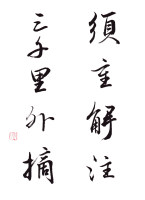 須主解注
三千里外摘